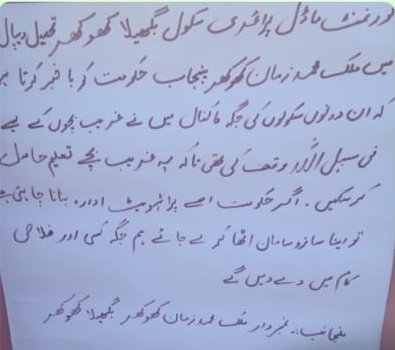 گورنمنٹ ماڈل پرائمری سکول بگھیلا کھوکھر تحصیل دیپال
میں ملک محمد زمان کھوکھر پنجاب حکومت کو باخبر کرتا ہوں
کہ ان دونوں سکولوں کی جگہ 8 کنال میں نے غریب بچوں کے لیے
فی سبیل اللہ وقف کی تھی تاکہ یہ غریب بچے تعلیم حاصل
کر سکیں۔ اگر حکومت اسے پرائیویٹ ادارہ بنانا چاہتی ہے
تو اپنا سازو سامان اٹھا کر لے جائے ہم جگہ کسی اور فلاحی
کام میں دے دیں گے
منجانب:۔ نمبردار ملک محمد زمان کھوکھر بگھیلا کھوکھر